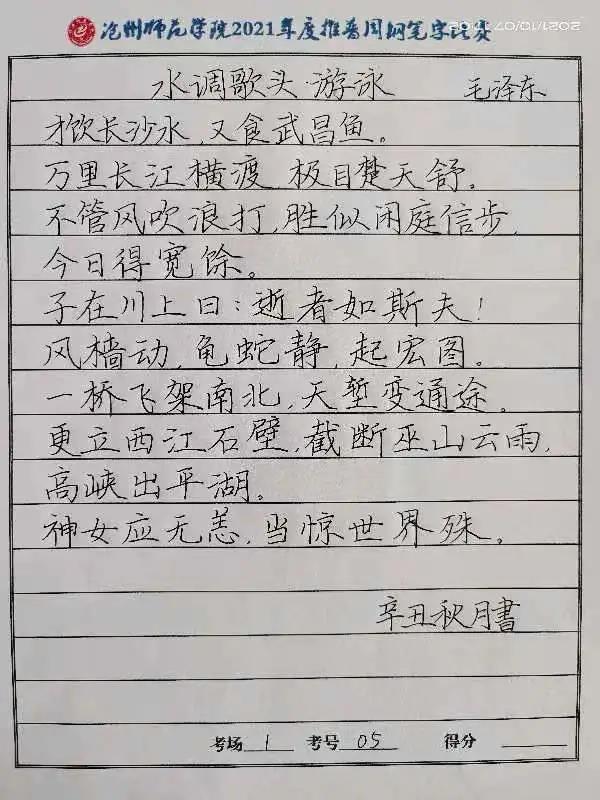 沧州师范学院2021年度推普周钢笔字比赛
水调歌头·游泳 毛泽东
才饮长沙水,又食武昌鱼。
万里长江横渡 极目楚天舒。
不管风吹浪打,胜似闲庭信步,
今日得宽馀。
子在川上曰:逝者如斯夫!
风樯动,龟蛇静,起宏图。
一桥飞架南北,天堑变通途。
更立西江石壁,截断巫山云雨,
高峡出平湖。
神女应无恙,当惊世界殊。
辛丑秋月書
考场 1 考号 05 得分